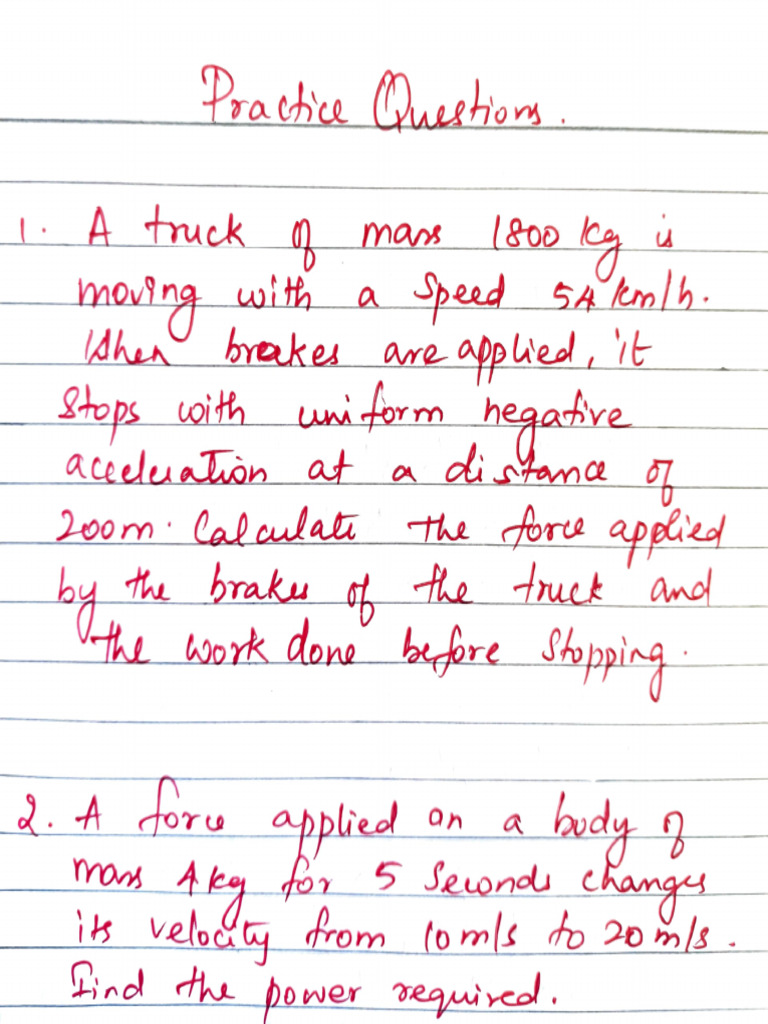 Practice Questions.
1. A truck of mass 1800 kg is
moving with a speed 54 km/h.
When brakes are applied, it
stops with uniform negative
acceleration at a distance of
200m. Calculate the force applied
by the brakes of the truck and
the work done before stopping.
2. A force applied on a body of
mass 4 kg for 5 seconds changes
its velocity from 10 m/s to 20 m/s.
Find the power required.